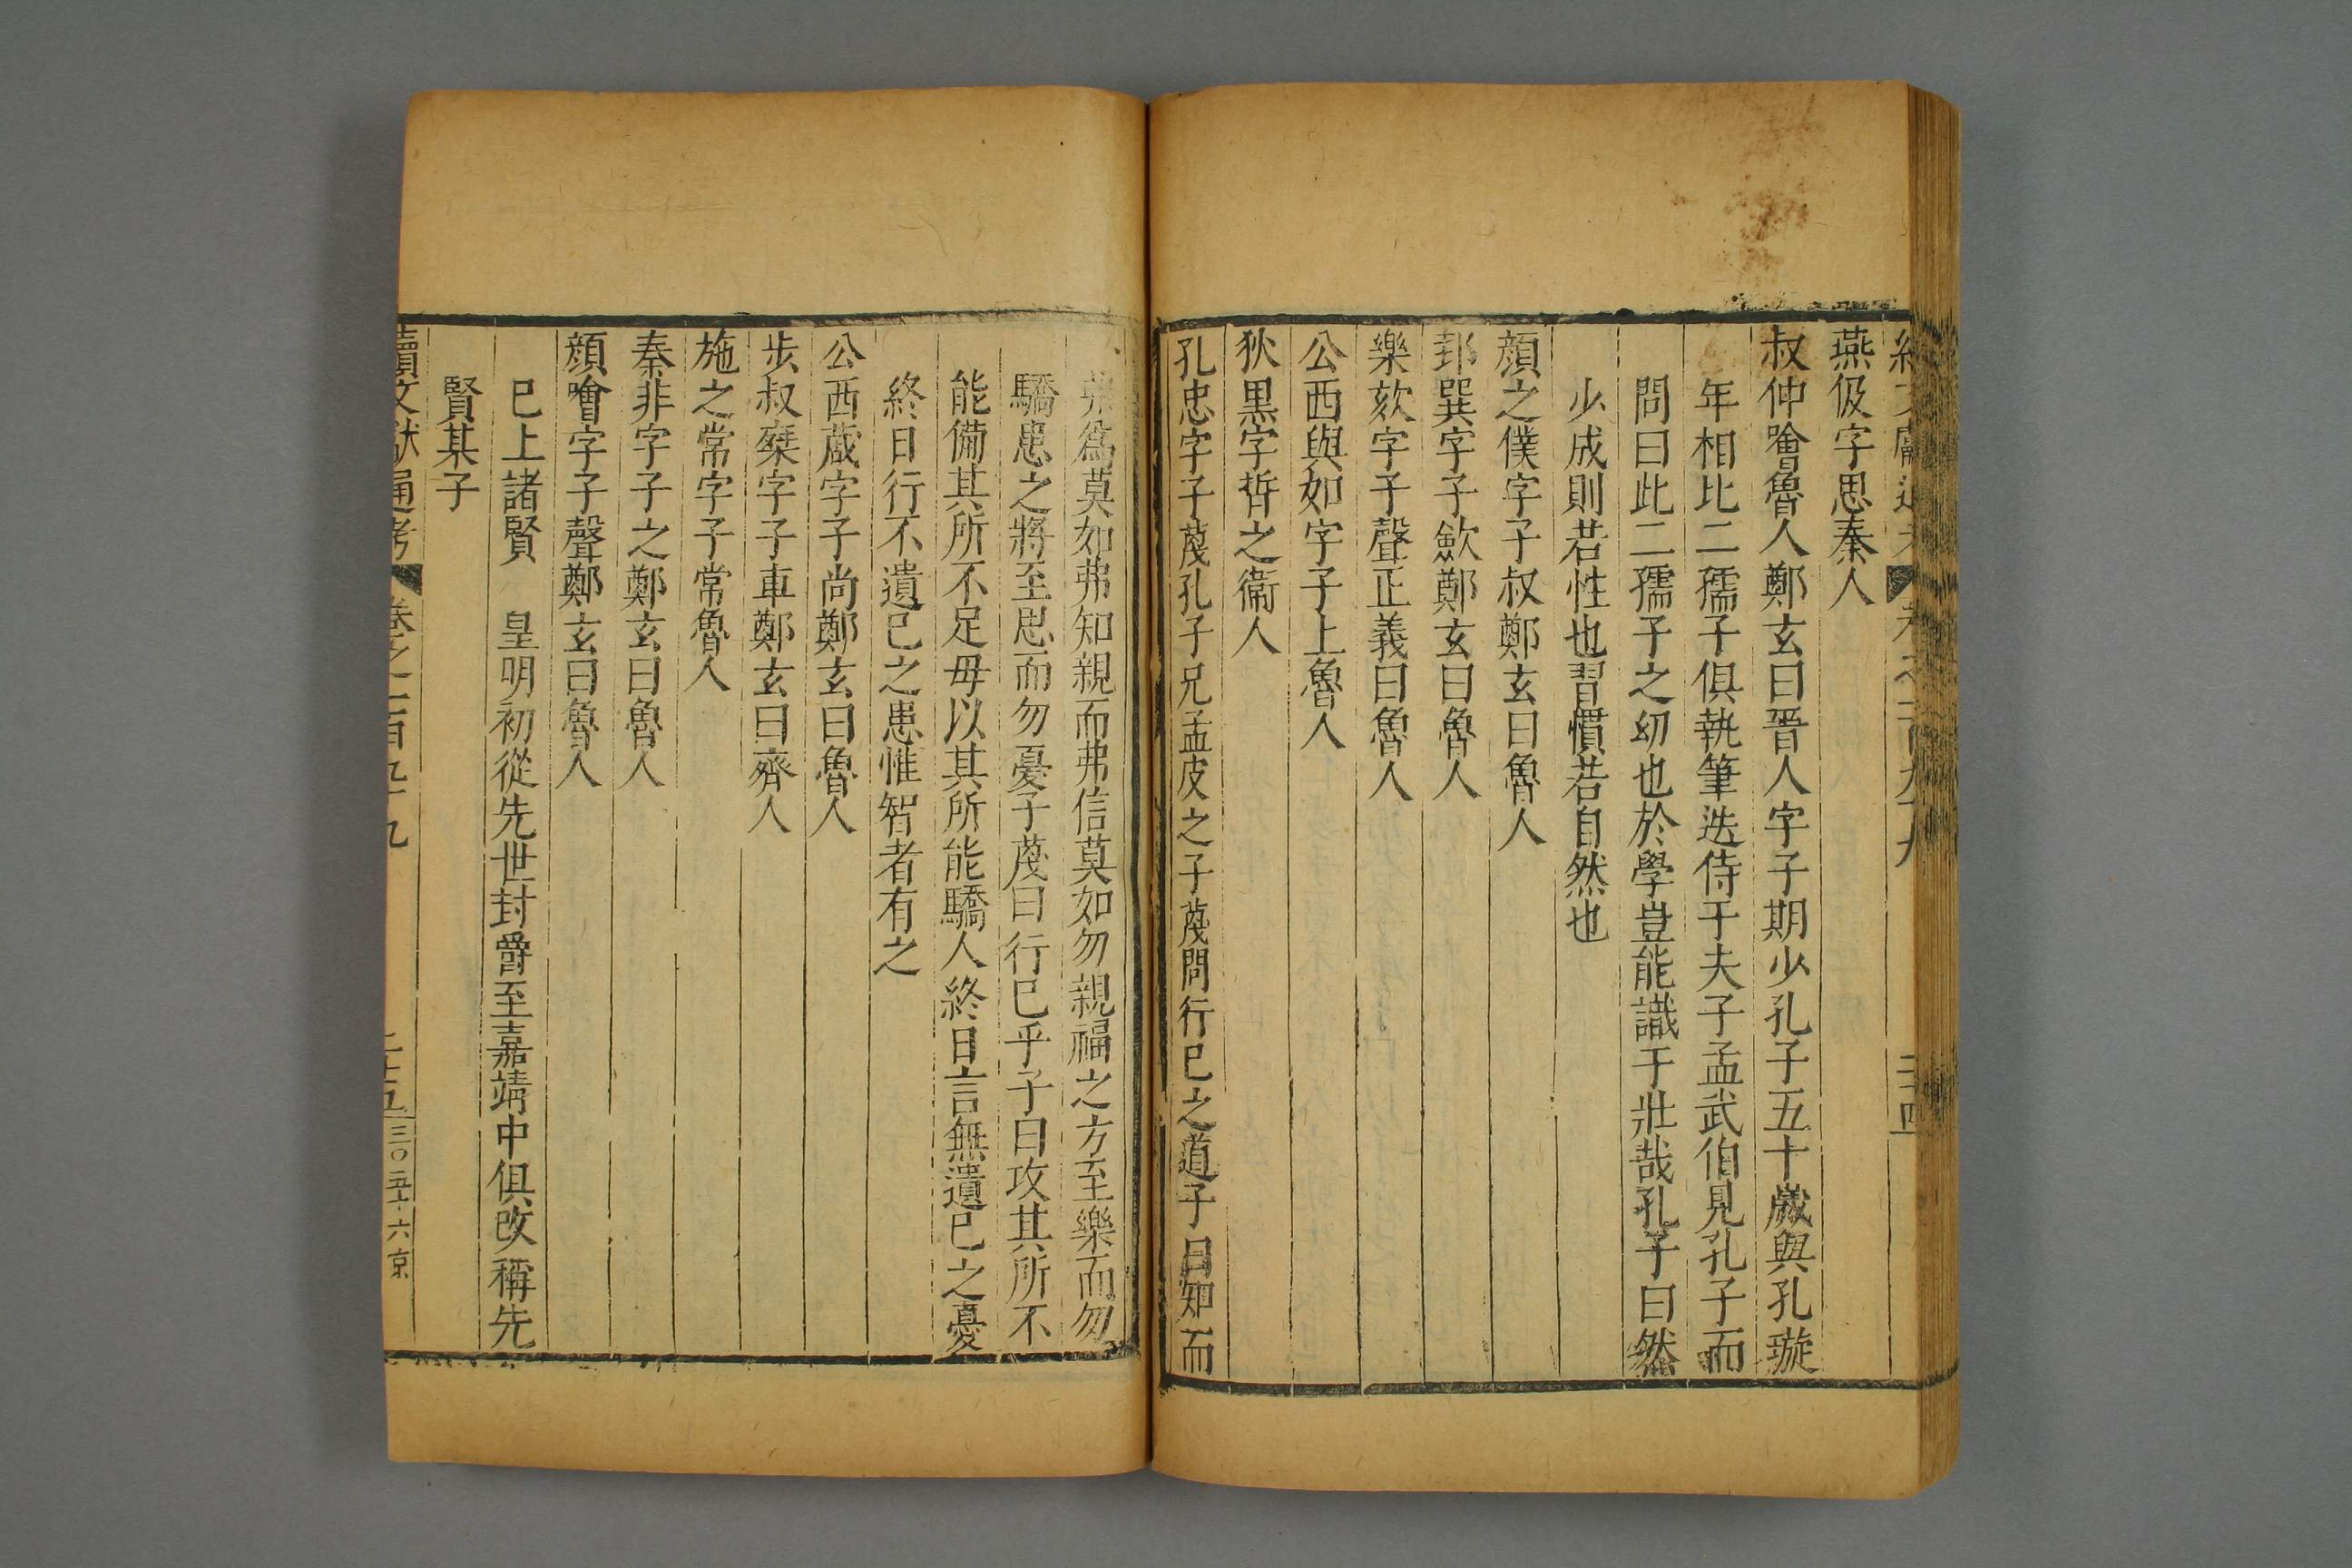 燕伋字思秦人
叔仲噲魯人鄭玄曰晉人字子期少孔子五十歲與孔璇
年相比二孺子俱執筆迭侍于夫子孟武伯見孔子而
問曰此二孺子之幼也於學豈能識于壯哉孔子曰然
少成則若性也習慣若自然也
顏之僕字子叔鄭玄曰魯人
邽巽字子歛鄭玄曰魯人
樂欬字子聲正義曰魯人
公西與如字子上魯人
狄黑字晢之衞人
孔忠字子蔑孔子兄孟皮之子蔑問行巳之道子曰知而
弗爲莫如弗知親而弗信莫如勿親福之方至樂而勿
驕患之將至思而勿憂子蔑曰行巳乎子曰攻其所不
能備其所不足毋以其所能驕人終日言無遺巳之憂
終日行不遺巳之患惟智者有之
公西蒧字子尚鄭玄曰魯人
步叔椉字子車鄭玄曰齊人
施之常字子常魯人
秦非字子之鄭玄曰魯人
顏噲字子聲鄭玄曰魯人
巳上諸賢 皇明初從先世封爵至嘉靖中俱改稱先
賢某子
續文獻通考 卷之一百九十九 二十五 三〇五十六 京